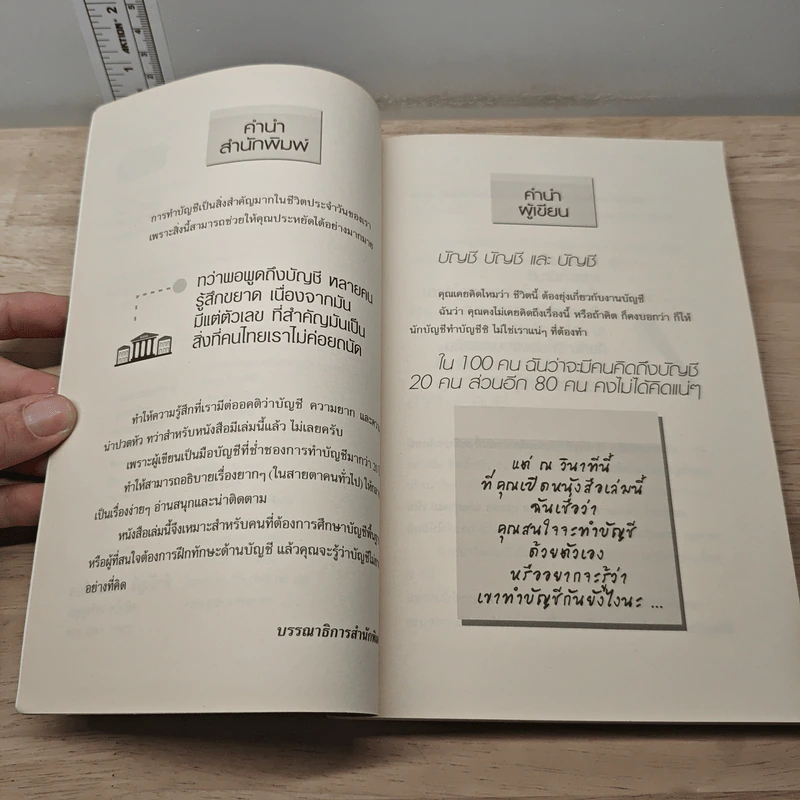 คำนำ
สำนักพิมพ์
การทำบัญชีเป็นสิ่งสำคัญมากในชีวิตประจำวันของเรา
เพราะสิ่งนี้สามารถช่วยให้คุณประหยัดได้อย่างมากมาย
ทว่าพอพูดถึงบัญชี หลายคน
รู้สึกขยาด เนื่องจากมัน
มีแต่ตัวเลข ที่สำคัญมันเป็น
สิ่งที่คนไทยเราไม่ค่อยถนัด
ทำให้ความรู้สึกที่เรามีต่ออคติว่าบัญชี ความยาก และความ
น่าปวดหัว ทว่าสำหรับหนังสือมีเล่มนี้แล้ว ไม่เลยครับ
เพราะผู้เขียนเป็นมือบัญชีที่ช่ำชองการทำบัญชีมากว่า
ทำให้สามารถอธิบายเรื่องยากๆ (ในสายตาคนทั่วไป)
เป็นเรื่องง่ายๆ อ่านสนุกและน่าติดตาม
หนังสือเล่มนี้จึงเหมาะสำหรับคนที่ต้องการศึกษาบัญชี
หรือผู้ที่สนใจต้องการฝึกทักษะด้านบัญชี แล้วคุณจะรู้ว่าบัญชี
อย่างที่คิด
บรรณาธิการ
คำนำ
ผู้เขียน
บัญชี บัญชี และ บัญชี
คุณเคยคิดไหมว่า ชีวิตนี้ ต้องยุ่งเกี่ยวกับงานบัญชี
ฉันว่า คุณคงไม่เคยคิดถึงเรื่องนี้ หรือถ้าคิด ก็คงบอกว่า ก็ให้
นักบัญชีทำบัญชีซิ ไม่ใช่เราแน่ๆ ที่ต้องทำ
ใน 100 คน ฉันว่าจะมีคนคิดถึงบัญชี
20 คน ส่วนอีก 80 คน คงไม่ได้คิดแน่ๆ
แต่ ณ วินาทีนี้
ที่คุณเปิดหนังสือเล่มนี้
ฉันเชื่อว่า
คุณสนใจจะทำบัญชี
ด้วยตัวเอง
หรืออยากจะรู้ว่า
เขาทำบัญชีกันยังไงนะ ...